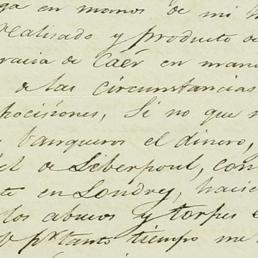 en manos de mi h
realisado y producto de
de caér en mano
de las circunstancias
pociciones, Si no que
banqueros el dinero,
de Liberpoul, con
en Londrez, hacie
los abusos y torpes
pr tanto tiempo me